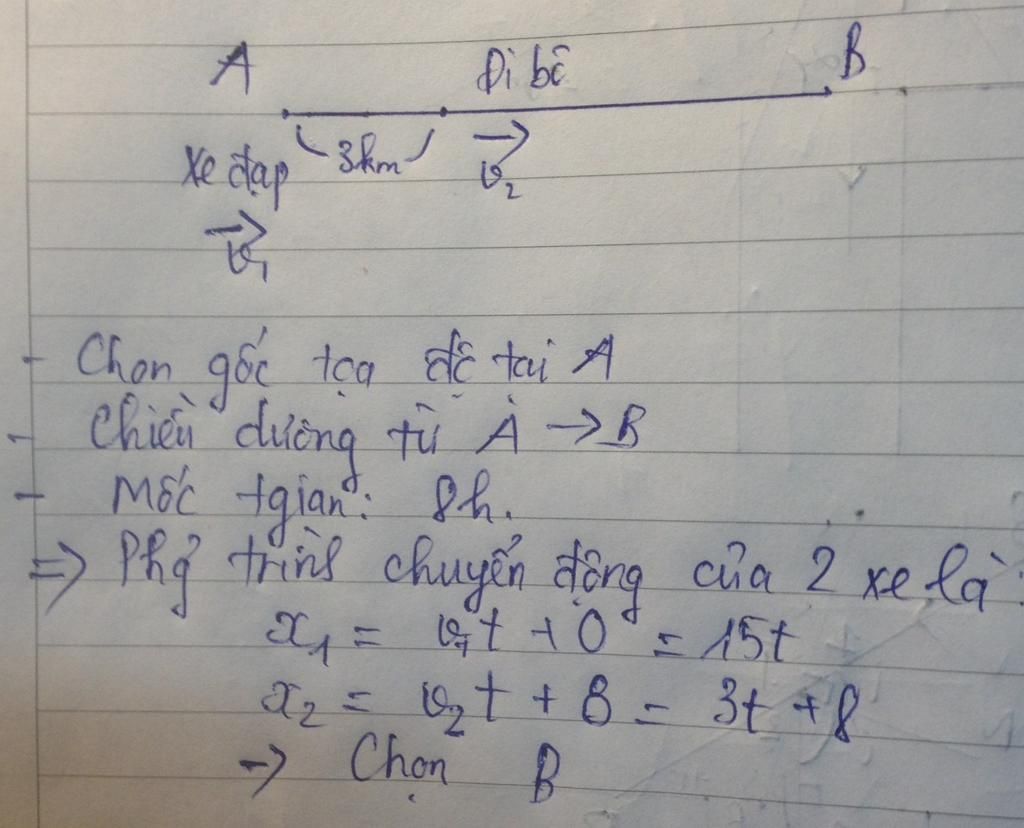 A Đi bộ B
Xe đạp 3km v₂
v₁
- Chọn gốc tọa độ tại A
- Chiều dương từ A → B
- Mốc tgian: 8h.
=> Phg trình chuyển động của 2 xe là:
x₁ = v₁t + 0 = 15t
x₂ = v₂t + 8 = 3t + 8
→ Chọn B